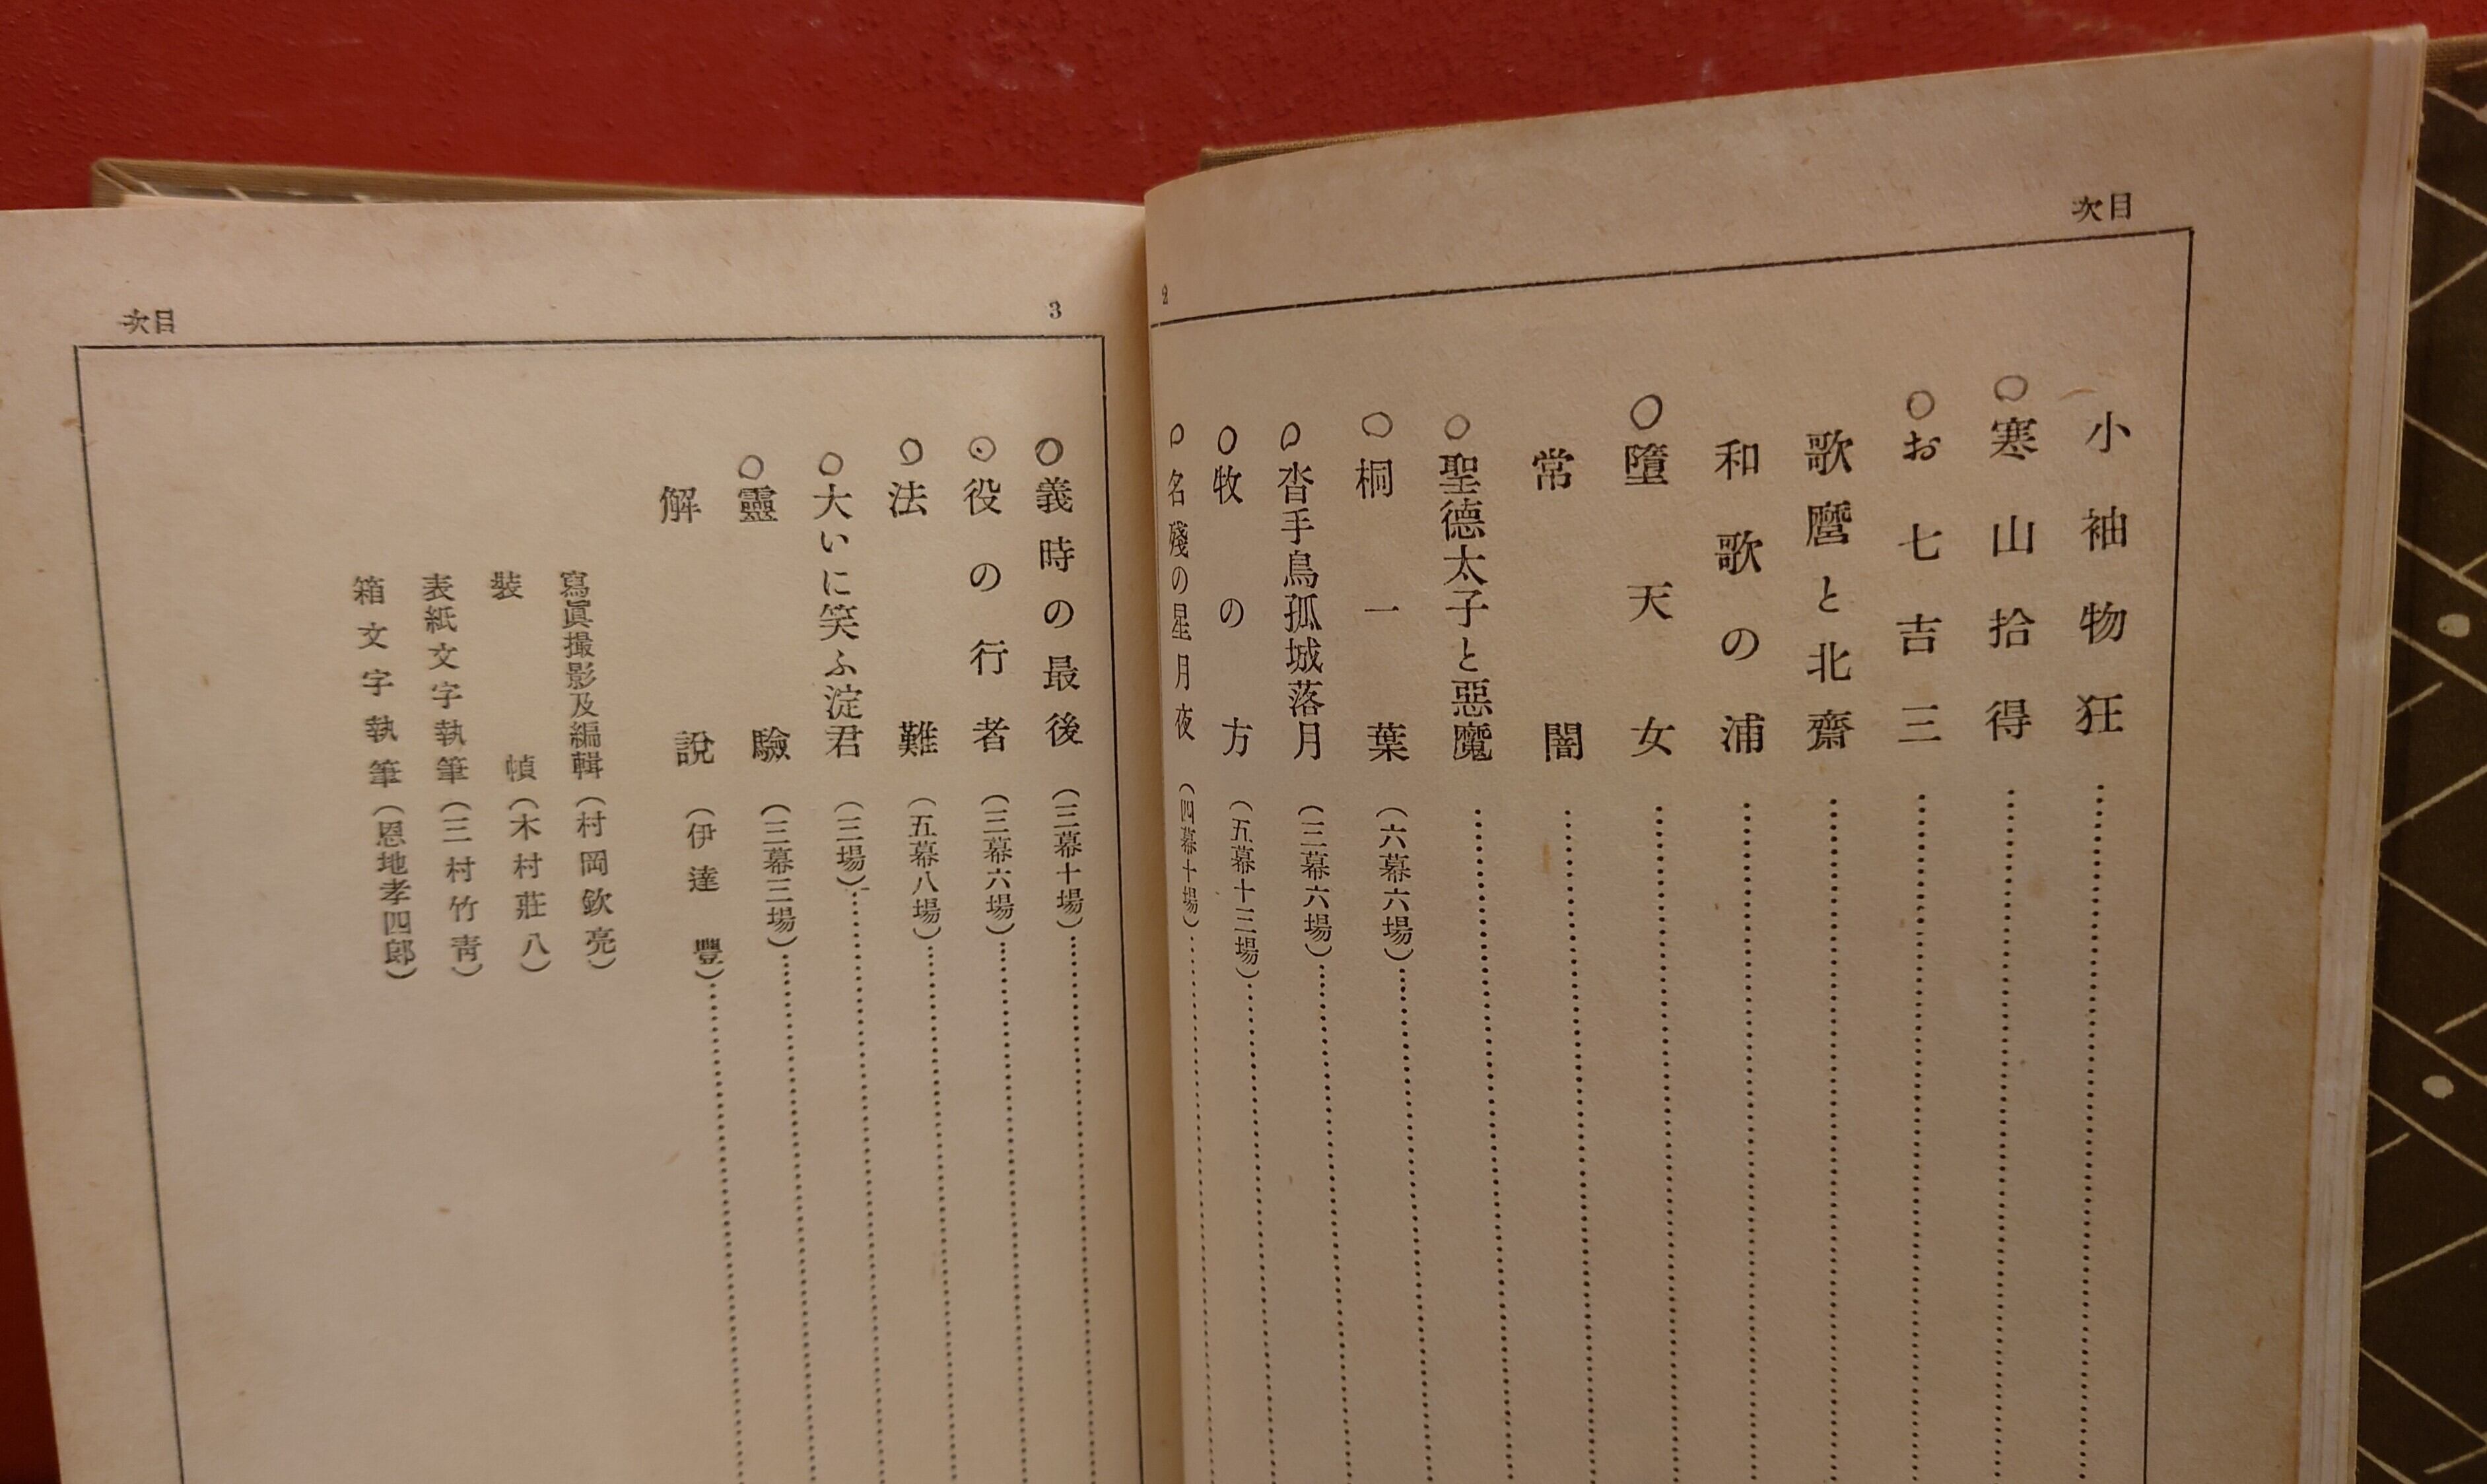 次目
2
小袖物狂
○寒山拾得
○お七吉三
歌麿と北齋
和歌の浦
○墮天女
常闇
○聖德太子と惡魔
○桐一葉（六幕六場）
○沓手鳥孤城落月（三幕六場）
○牧の方（五幕十三場）
○名殘の星月夜（四幕十場）
次目
3
○義時の最後（三幕十場）
○役の行者（三幕六場）
○法難（五幕八場）
○大いに笑ふ淀君（三場）
○靈驗（三幕三場）
解說（伊達豐）
寫眞撮影及編輯（村岡欽亮）
裝幀（木村莊八）
表紙文字執筆（三村竹靑）
箱文字執筆（恩地孝四郞）